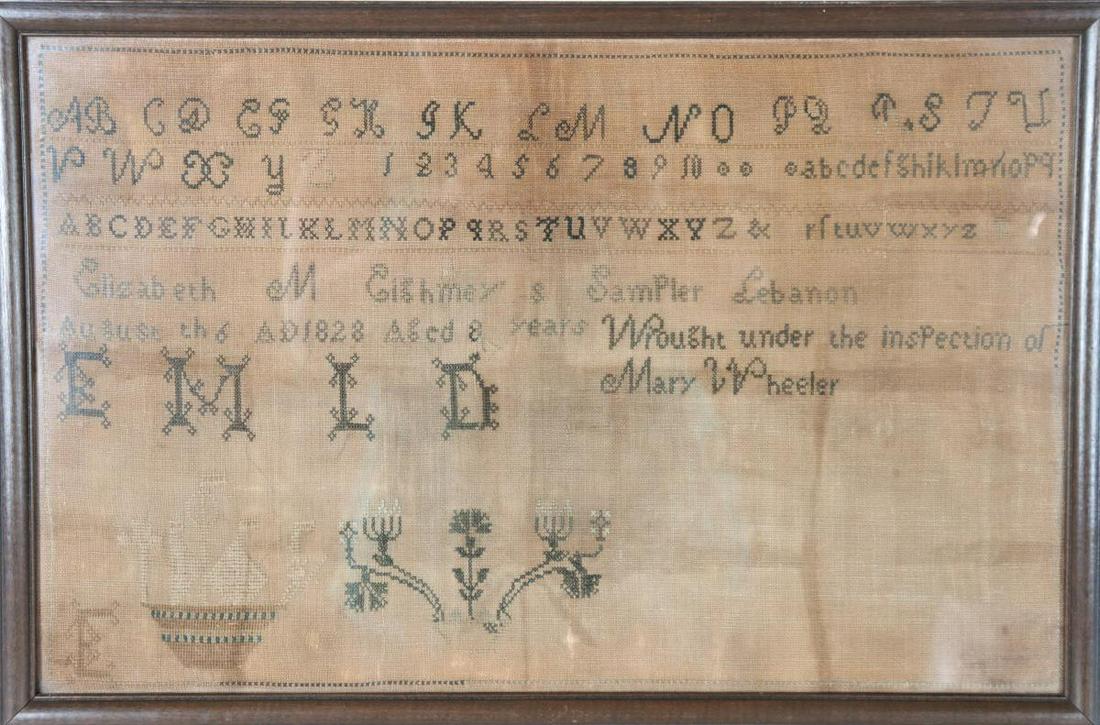 A B C D E F G H I K L M N O P Q R S T U
V W X Y Z 1 2 3 4 5 6 7 8 9 10 a b c d e f g h i k l m n o p q
A B C D E F G H I K L M N O P q R S T U V W X Y Z & r ſ t u v w x y z
Elizabeth M Eighmey's Sampler Lebanon
August th 6 AD 1828 Aged 8 years Wrought under the inspection of
Mary Wheeler
E M L D
E